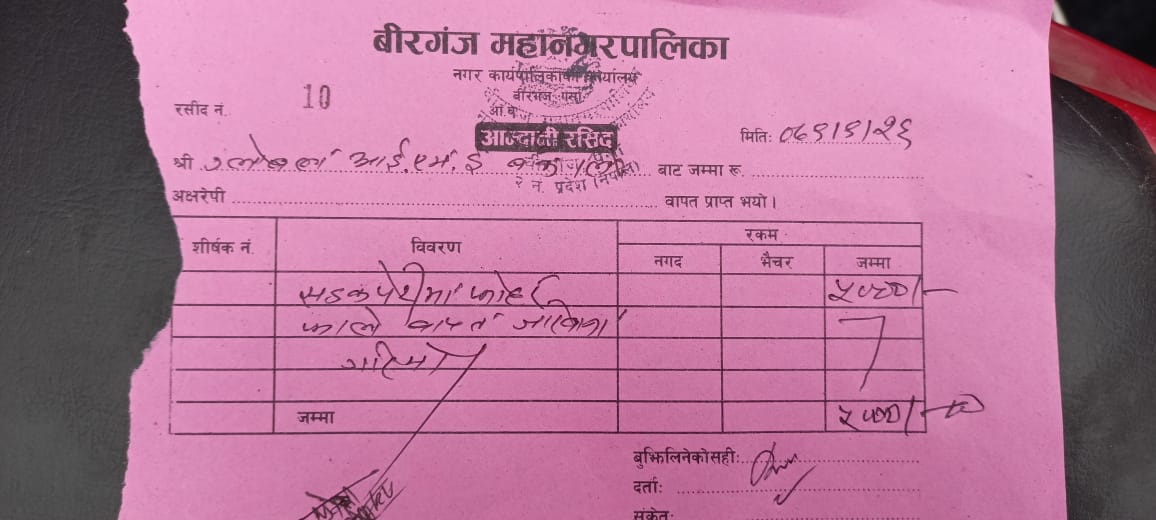 बीरगंज महानगरपालिका
नगर कार्यपालिकाको कार्यालय
बीरगंज पर्सा
रसीद नं. 10
आ.व.
आम्दानी रसिद
मिति:
श्री ग्लोबल आई.एम.ई बैंक बाट जम्मा रू
२ नं. प्रदेश (नेपाल)
अक्षरेपी वापत प्राप्त भयो।
शीर्षक नं. विवरण रकम
नगद भैचर जम्मा
सडक पेटीमा फोहर ५०००/-
फाले वापत जरिवाना
गरिएको
जम्मा ५०००/-
बुझिलिनेको सही:
दर्ता:
संकेत: